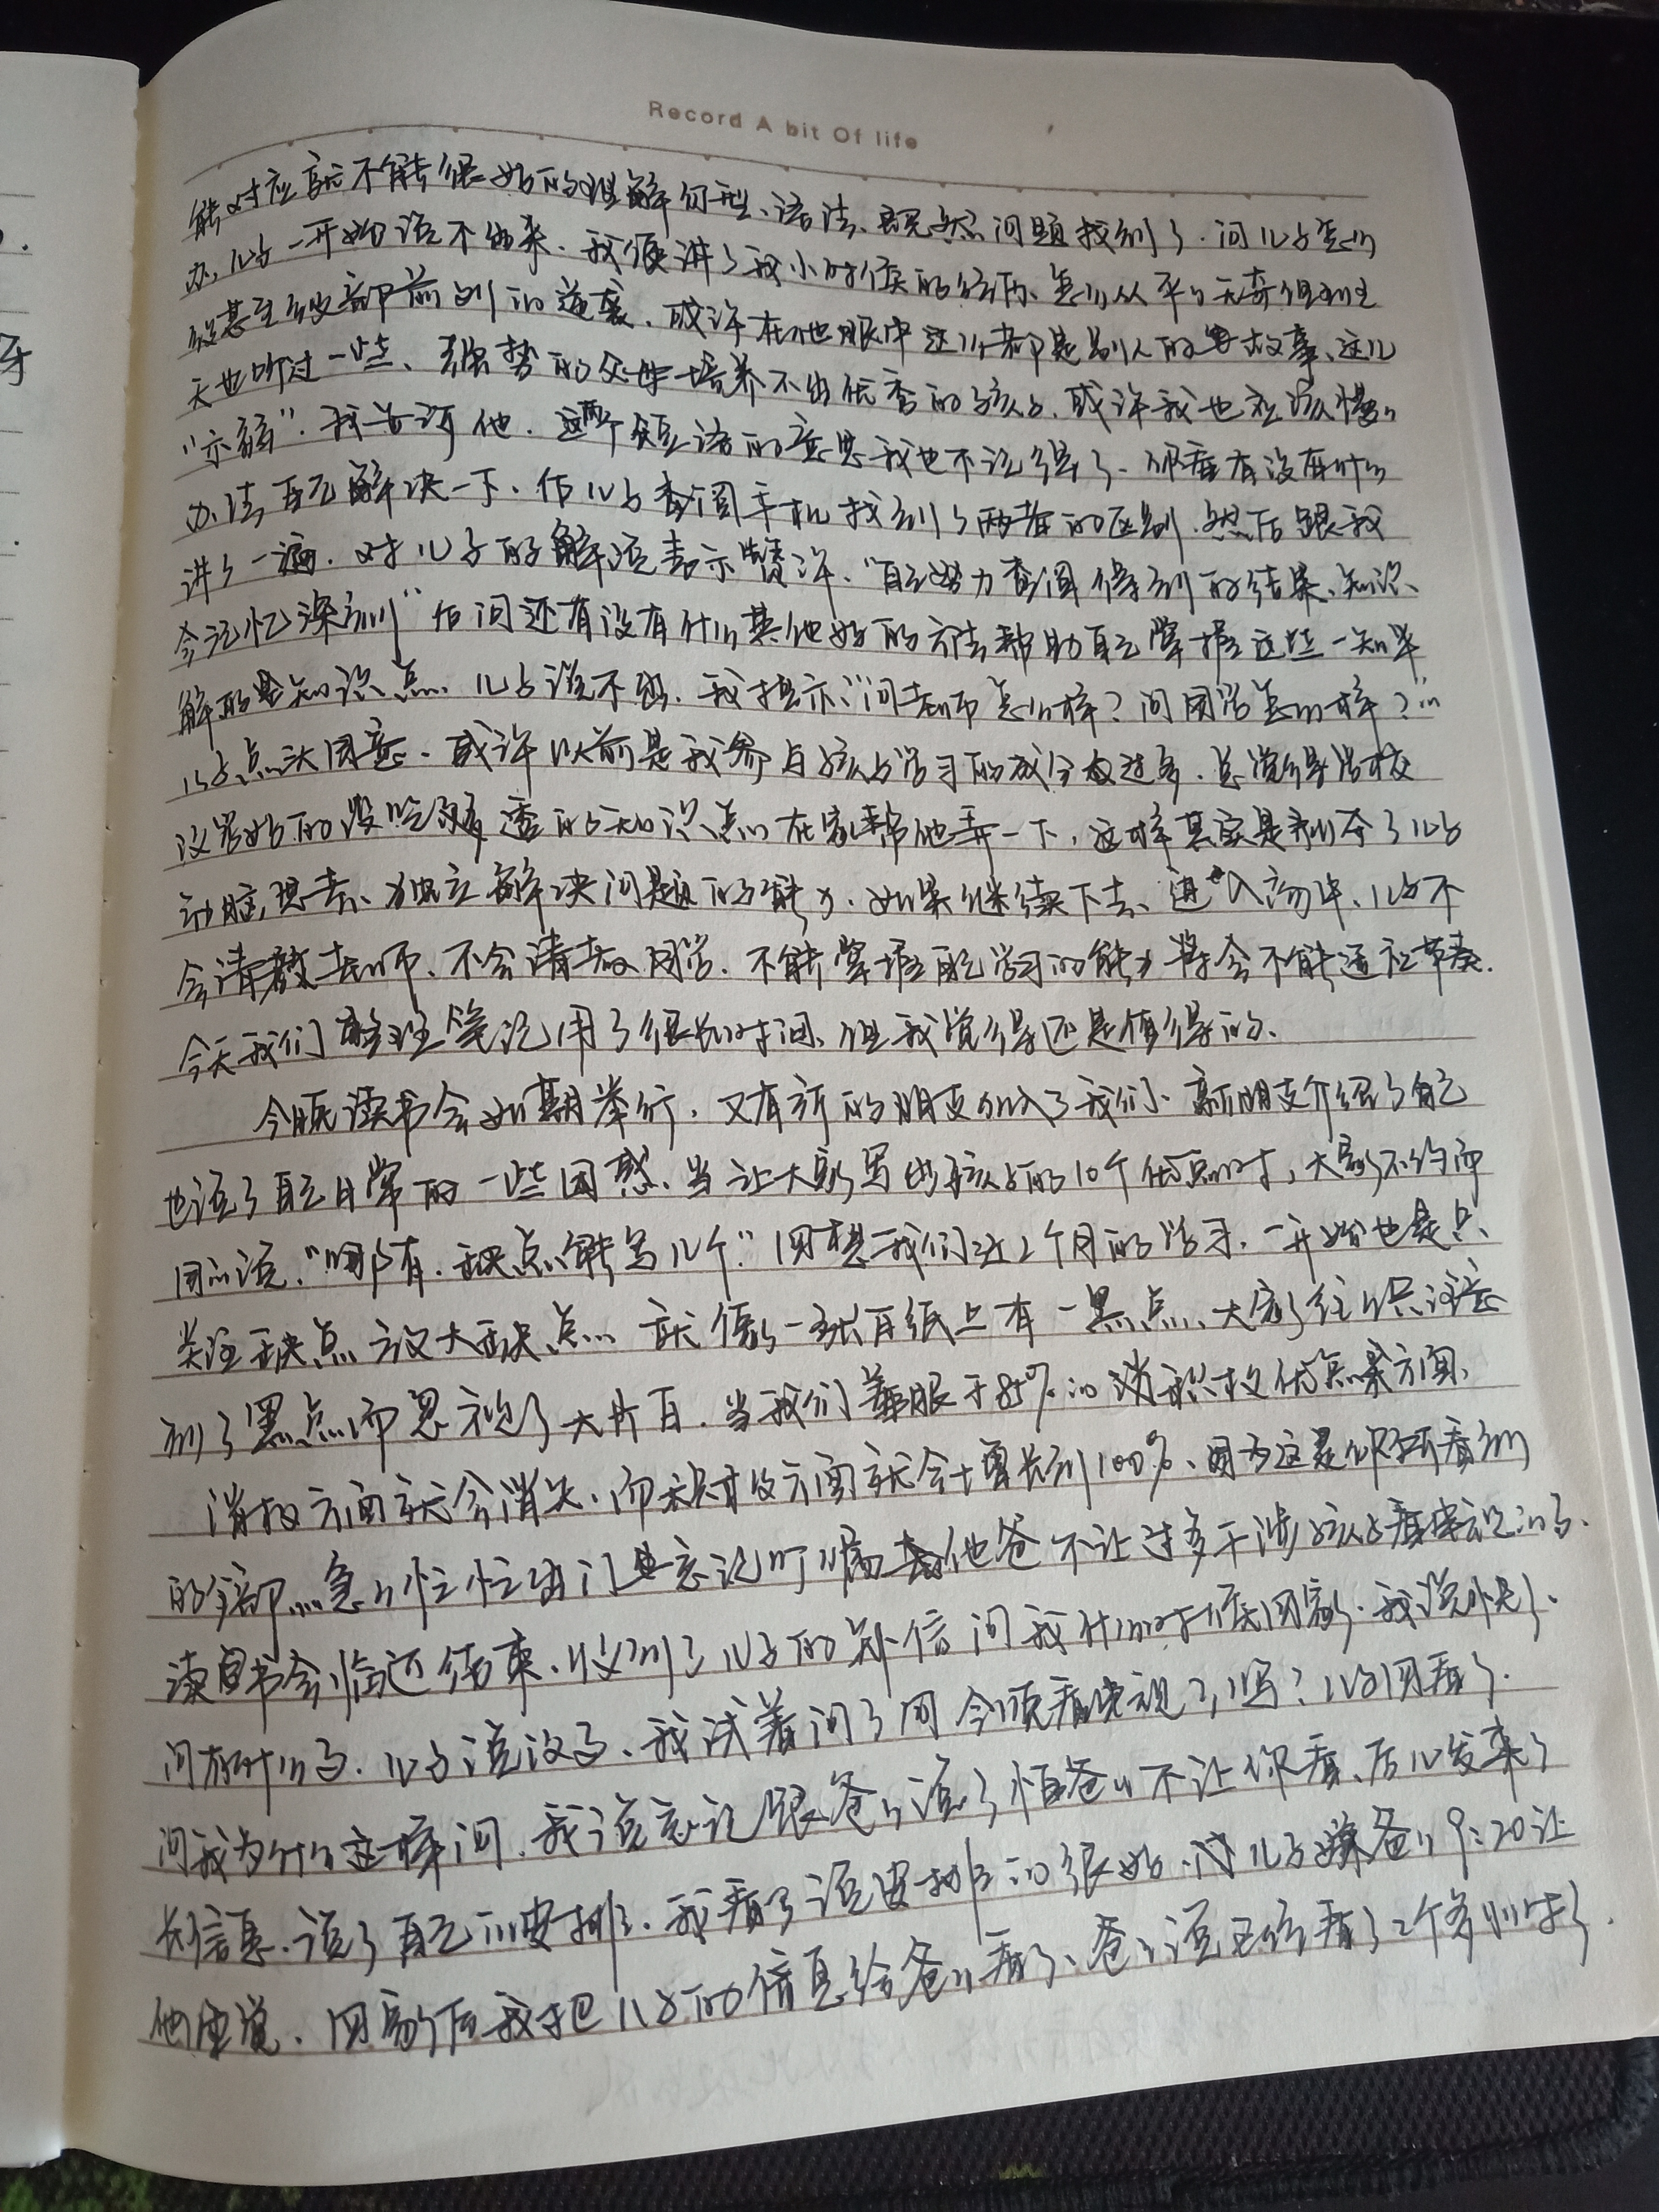 Record A bit Of life
能对应就不能很好的理解句型、语法、既然问题找到了.问儿子怎么
办,儿子一开始说不出来.我便讲了我小时候的经历、怎么从平平无奇但到班
级甚至级部前列的逆袭.或许在他眼中这么都是别人的故事、这几
天也听过一些、强势的父母培养不出优秀的孩子.或许我也应该慢慢
“示弱”.我告诉他.这两个短语的意思我也不记得了.你看有没有什么
办法自己解决一下.后儿子查阅手机找到了两者的区别.然后跟我
讲了一遍.对儿子的解说表示赞许.“自己努力查阅得到的结果、知识
会记忆深刻”后问还有没有什么其他好的方法帮助自己掌握这些一知半
解的知识点、儿子说不知.我提示:“问老师怎么样?问同学怎么样?”
儿子点头同意.或许以前是我参与孩子学习的成分太过多.总觉得学校
没学好的没吃透的知识点在家帮他弄一下,这样其实是剥夺了儿子
动脑,思考、独立解决问题的能力.如果继续下去、进入初中、儿子不
会请教老师、不会请教同学.不能掌握自己学习的能力将会不能适应节奏.
今天我们整理笔记用了很长时间、但我觉得还是值得的.
今晚读书会如期举行.又有新的朋友加入了我们、新朋友介绍了自己
也说了自己日常的一些困惑.当让大家写出孩子的10个优点时,大家不约而
同的说,“哪有.缺点能写几个.”回想我们近2个月的学习.一开始也是只
关注缺点放大缺点、就像一张白纸上有一黑点、大家往往只注意
到了黑点而忽视了大片白.当我们着眼于85%的积极优点方面、
消极方面就会消失、而积极方面就会增长到100%、因为这是你所看到
的全部.急急忙忙出门忘记叮嘱他爸不让过多干涉孩子看电视的事.
读书会临近结束、收到了儿子的微信问我什么时候回家.我说快了、
问有什么事.儿子说没事、我试着问了问今晚看电视了吗?儿子回看了.
问我为什么这样问.我说忘记跟爸爸说了怕爸爸不让你看、后儿发来了
长信息、说了自己的安排、我看了说安排的很好.儿子嫌爸爸9:20让
他睡觉.回家后我把儿子的信息给爸爸看了、爸爸说已经看了2个多小时了.